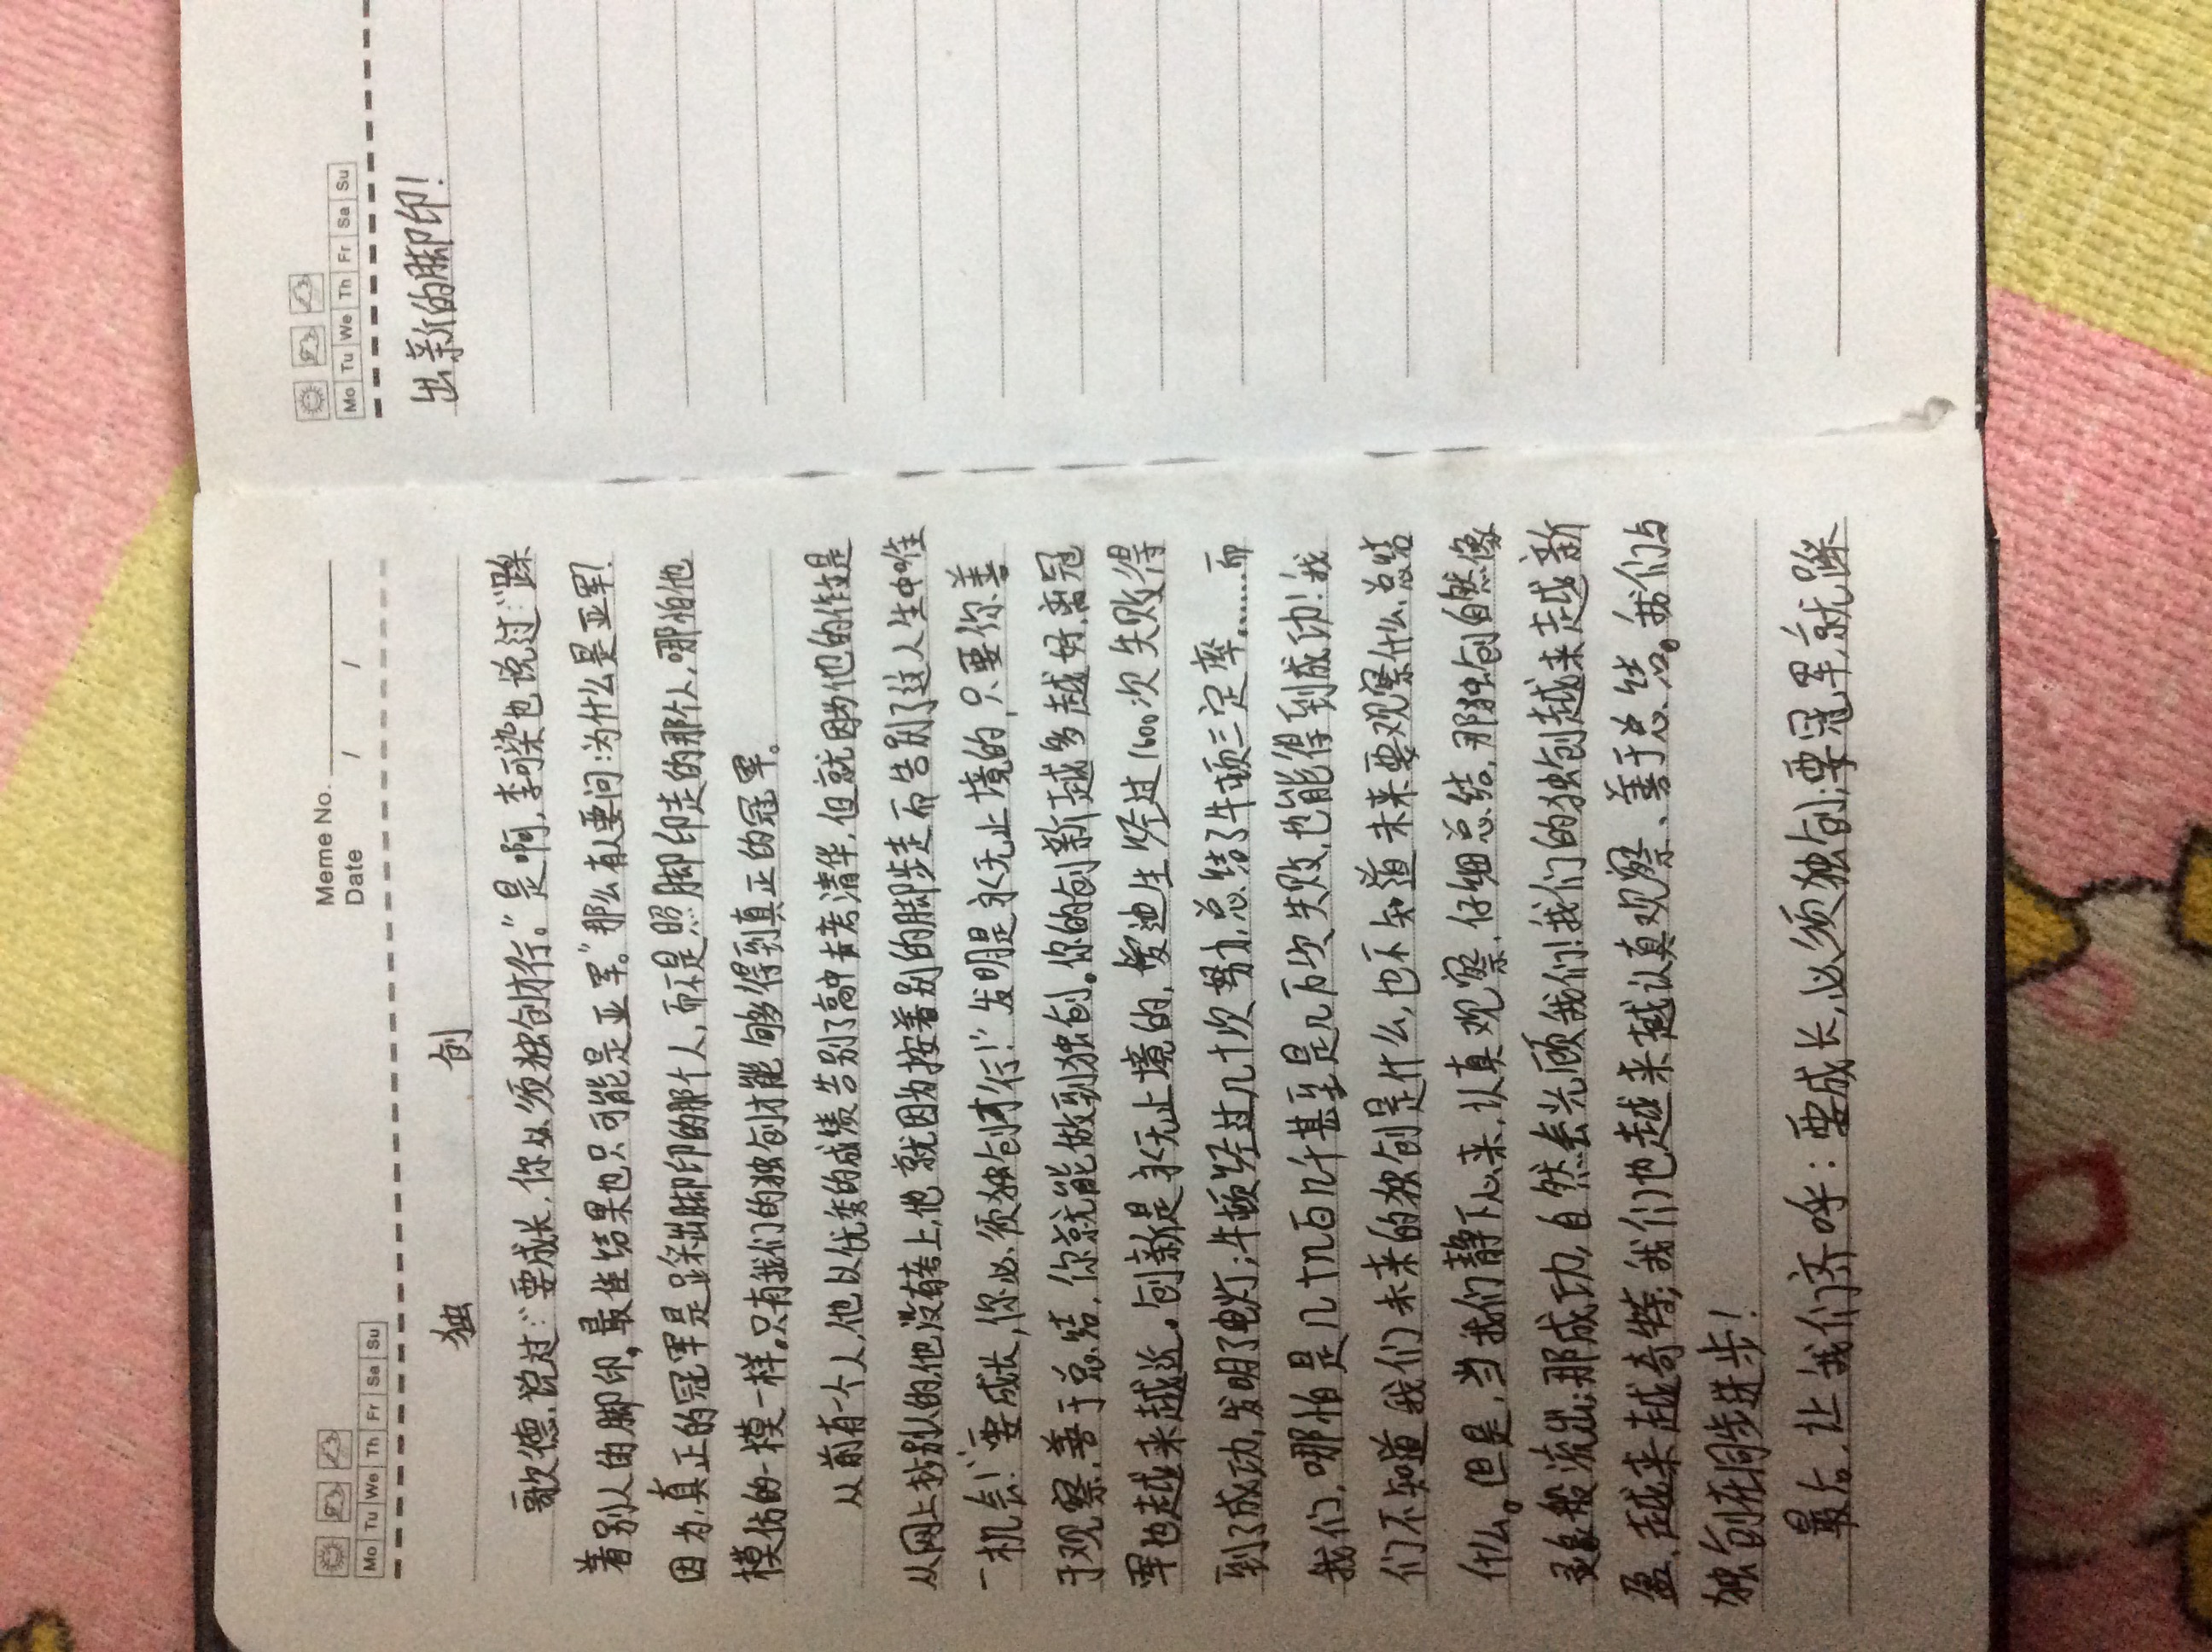 Meme No.
Mo Tu We Th Fr Sa Su
Date / /
独 创
歌德说过:“要成长,你必须独创才行。”是啊,李可染也说过:“踩
着别人的脚印,最佳结果也只可能是亚军。”那么有人要问:为什么是亚军?
因为,真正的冠军是踩出脚印的那个人,而不是照脚印走的那个人,哪怕他
模仿的一模一样。只有我们的独创才能够得到真正的冠军。
从前有一个人,他以优秀的成绩告别了高中考清华,但就因为他的作文是
从网上抄别人的,他没有考上,他就因为按着别的脚步走而告别了这人生中唯
一机会!“要成长,你必须独创才行!”发明是永无止境的,只要你善
于观察,善于总结,你就能做到独创。你的创新越多越好,离冠
军也越来越近。创新是永无止境的,爱迪生经过1600次失败得
到了成功,发明了电灯;牛顿经过几十次努力,总结了牛顿三定率……而
我们,哪怕是几十几百几千甚至是几万次失败,也能得到成功!我
们不知道我们未来的独创是什么,也不知道未来要观察什么,总结
什么。但是,当我们静下心来,认真观察,仔细总结,那独创自然像
灵泉般流出;那成功,自然会光顾我们!我们的独创越来越新
盈,越来越奇特;我们也越来越认真观察、善于总结。我们与
独创在同步进步!
最后,让我们齐呼:要成长,必须独创;要冠军,就踩
Mo Tu We Th Fr Sa Su
出新的脚印!